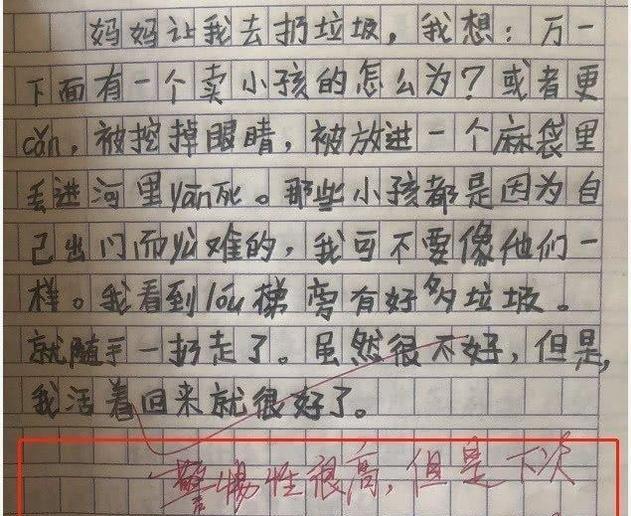 妈妈让我去扔垃圾，我想：万一
下面有一个卖小孩的怎么为？或者更
cǎn，被挖掉眼睛，被放进一个麻袋里
丢进河里yān死。那些小孩都是因为自
己出门而难的，我可不要像他们一
样。我看到lóu梯旁有好多垃圾。
就随手一扔走了。虽然很不好，但是，
我活着回来就很好了。
警惕性很高，但是下次